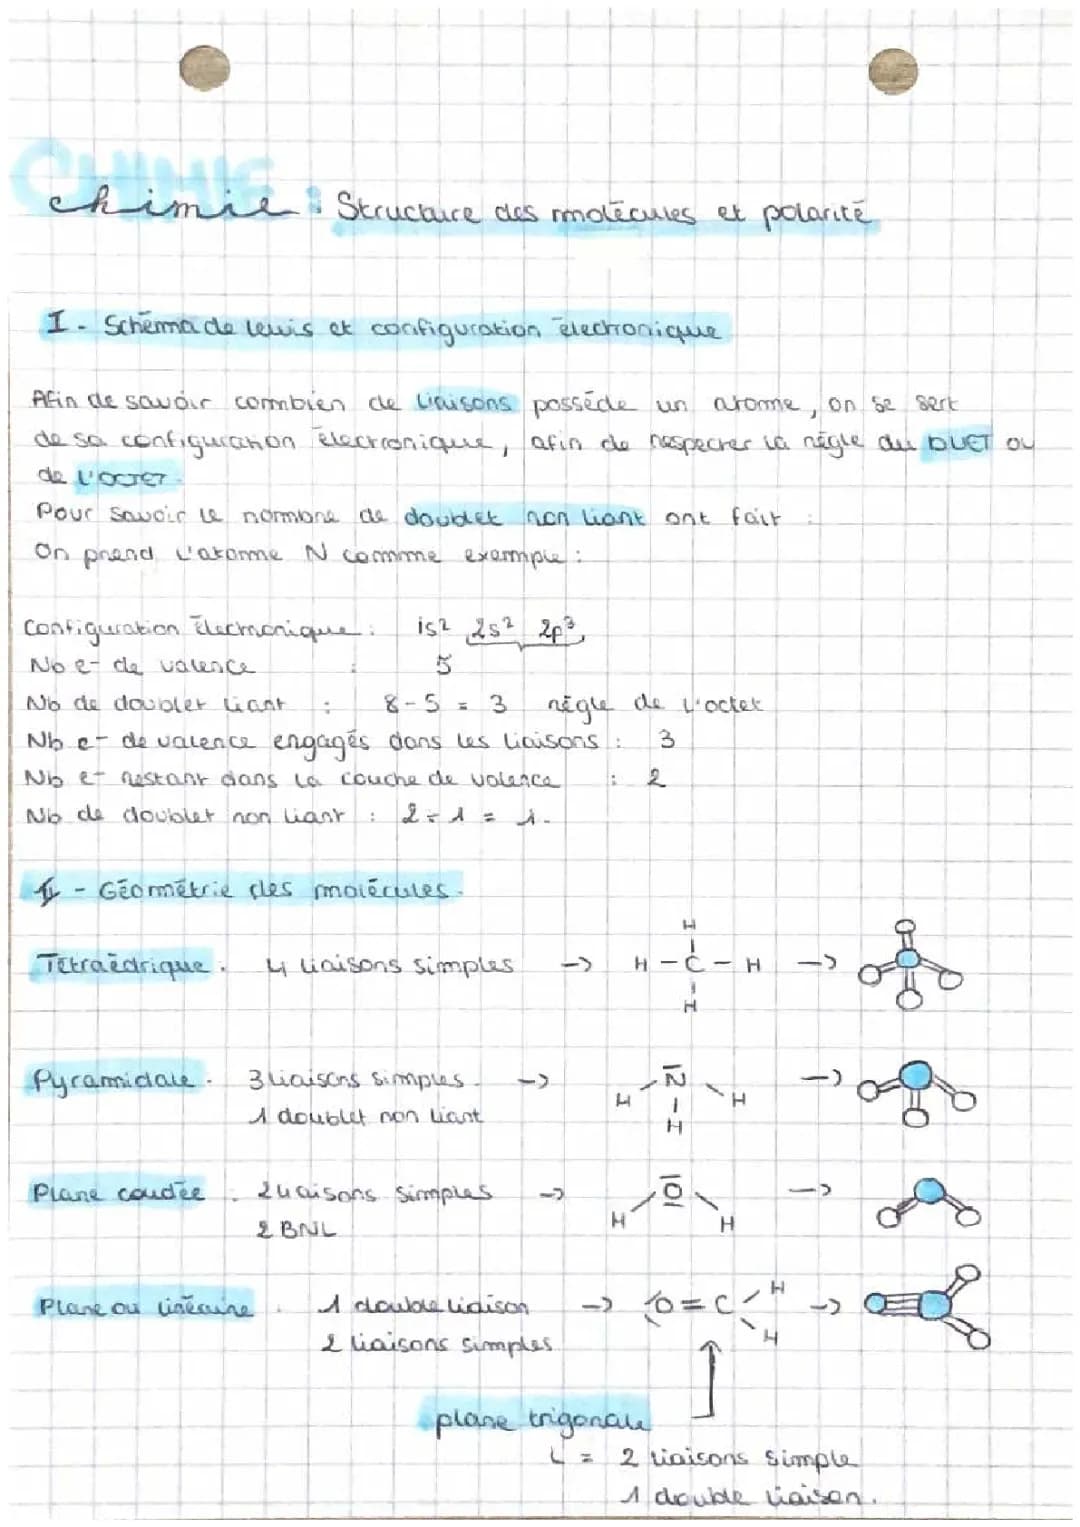 CHIMIE
chimie : Structure des molécules et polarité
I - Schéma de lewis et configuration électronique
Afin de savoir combien de liaisons posséde un atome, on se sert
de sa configuration électronique, afin de respecter la règle du DUET ou
de l'OCTET.
Pour savoir le nombre de doublet non liant ont fait :
On prend l'atome N comme exemple :
Configuration électronique : 1s² 2s² 2p³
Nb e- de valence : 5
Nb de doublet liant : 8-5 = 3 règle de l'octet
Nb e- de valence engagés dans les liaisons : 3
Nb e- restant dans la couche de valence : 2
Nb de doublet non liant : 2÷1 = 1.
II - Géométrie des molécules.
H
Tétraèdrique. 4 liaisons simples -> H - C - H ->
H
Pyramidale. 3 liaisons simples. -> N ->
1 doublet non liant H H
H
Plane coudée. 2 liaisons simples -> O ->
2 BNL H H
Plane ou linéaire. 1 double liaison -> O = C H ->
2 liaisons simples H
plane trigonale
= 2 liaisons simple
1 double liaison.